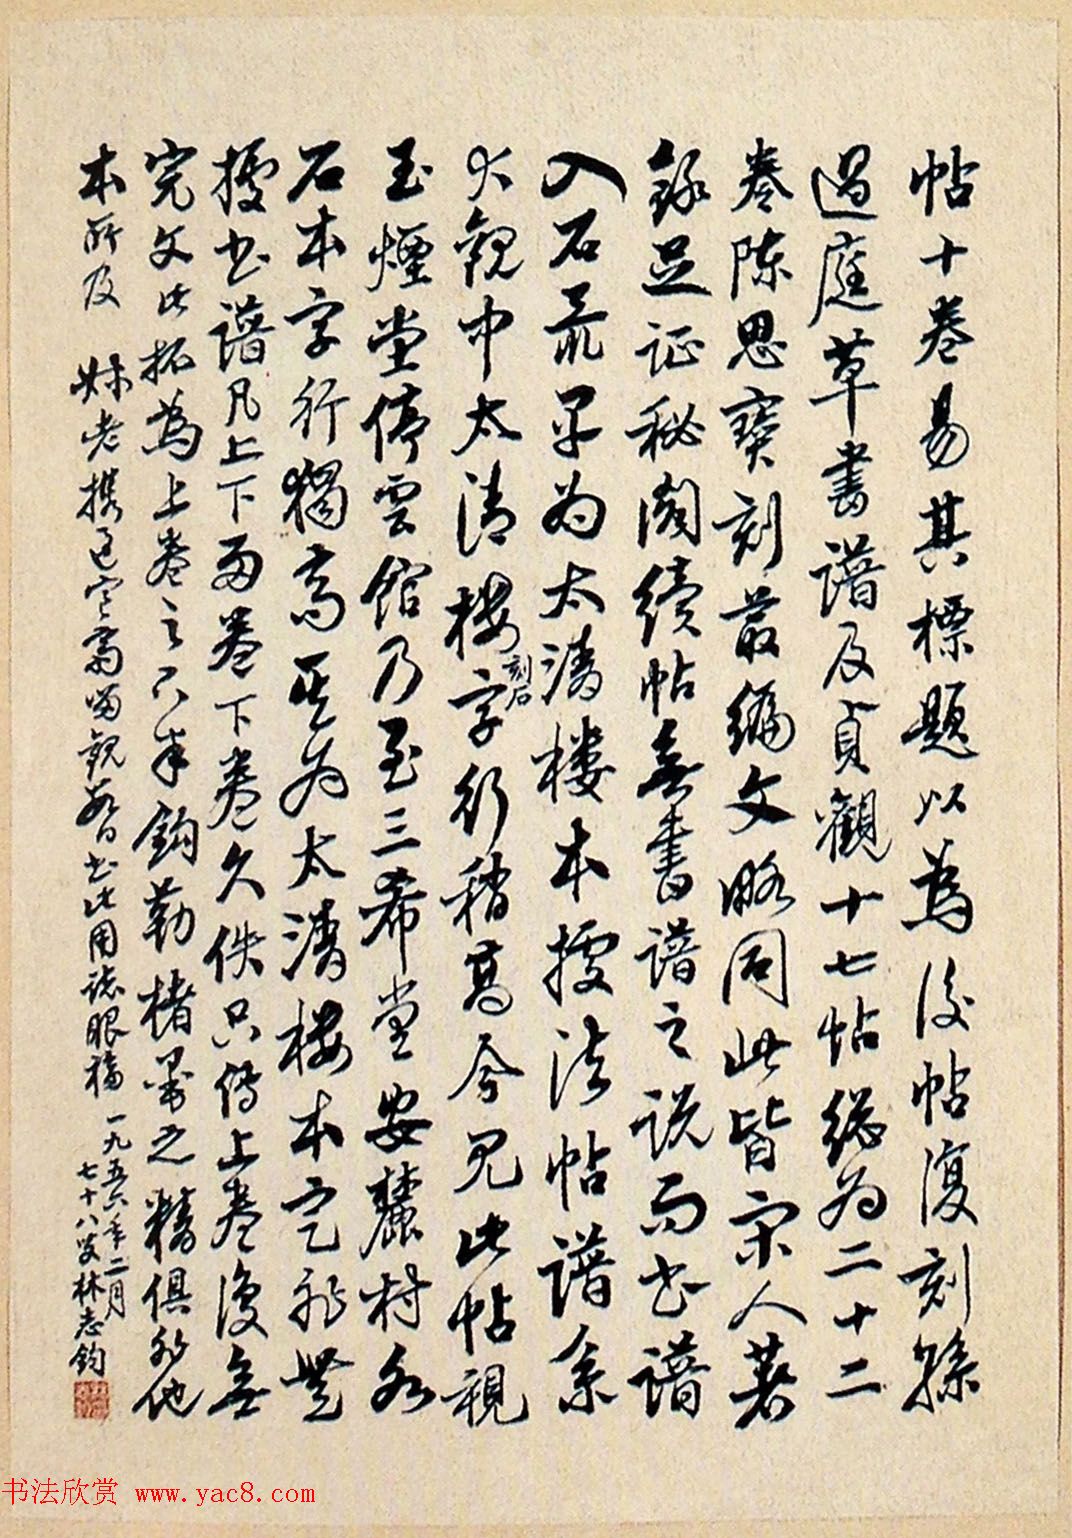 帖十卷易其標題以為後帖復刻孫
過庭草書譜及貞觀十七帖總为二十二
卷陳思寶刻叢編文略同此皆宋人著
錄足证秘阁續帖無書譜之說而书譜
入石最早为太清樓本据法帖譜系
大觀中太清樓刻石字行稍高今见此帖視
玉煙堂停雲館乃至三希堂安麓村各
石本字行獨高其为太清樓本定非無
据书譜凡上下两卷下卷久佚只傳上卷復無
完文此拓為上卷之鈎勒楮墨之精俱非他
本所及 老携过宅齋留觀书此用誌眼福 一九五六年二月
七十八叟林志鈞
书法欣赏 www.yac8.com